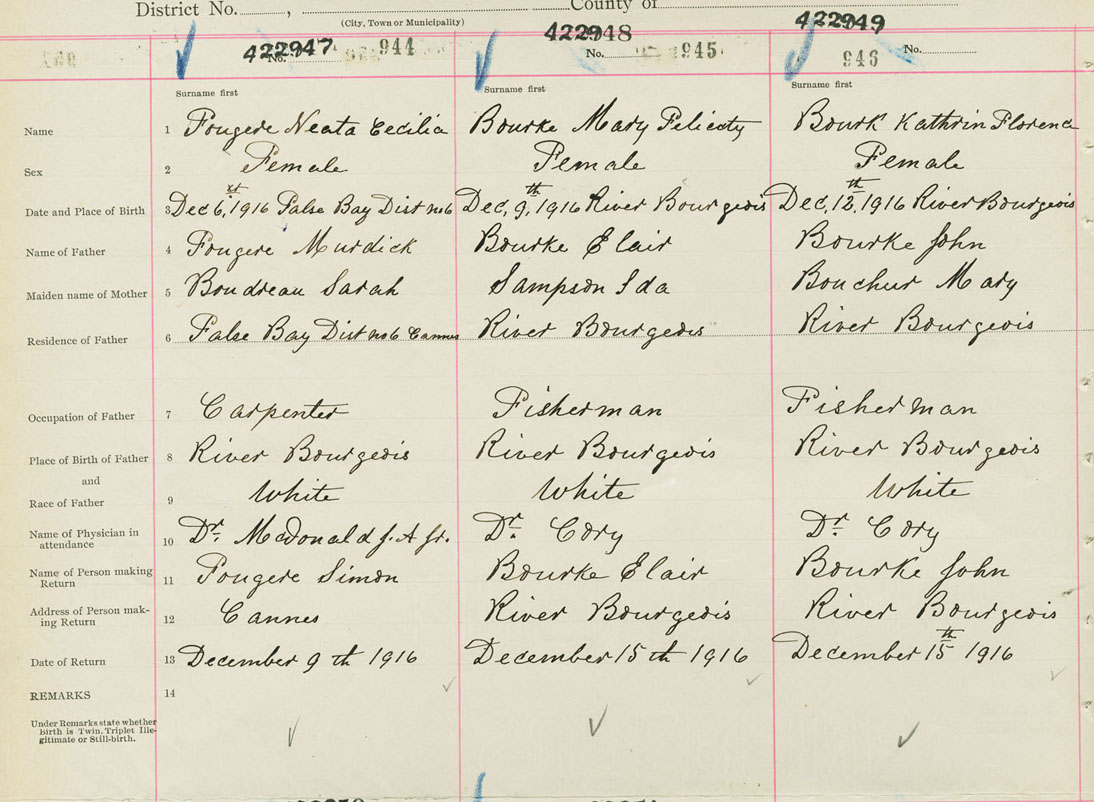 District No. , County of
(City, Town or Municipality)
422947 944 422948 945 422949 946
No. No. No.
Surname first Surname first Surname first
Name 1 Fougere Neata Cecilia Bourke Mary Felicity Bourk Kathrin Florence
Sex 2 Female Female Female
Date and Place of Birth 3 Dec 6, st 1916 False Bay Dist no 6 Dec, 9, th 1916 River Bourgeois Dec, 12, th 1916 River Bourgeois
Name of Father 4 Fougere Murdick Bourke Elair Bourke John
Maiden name of Mother 5 Boudreau Sarah Sampson Ida Bouchur Mary
Residence of Father 6 False Bay Dist no 6 Cannes River Bourgeois River Bourgeois
Occupation of Father 7 Carpenter Fisherman Fisherman
Place of Birth of Father 8 River Bourgeois River Bourgeois River Bourgeois
and
Race of Father 9 White White White
Name of Physician in
attendance 10 Dr. McDonald J. A Jr. Dr. Cory Dr. Cory
Name of Person making
Return 11 Fougere Simon Bourke Elair Bourke John
Address of Person mak-
ing Return 12 Cannes River Bourgeois River Bourgeois
Date of Return 13 December 9 th 1916 December 15 th 1916 December 15 th 1916
REMARKS 14
Under Remarks state whether
Birth is Twin, Triplet Ille-
gitimate or Still-birth.